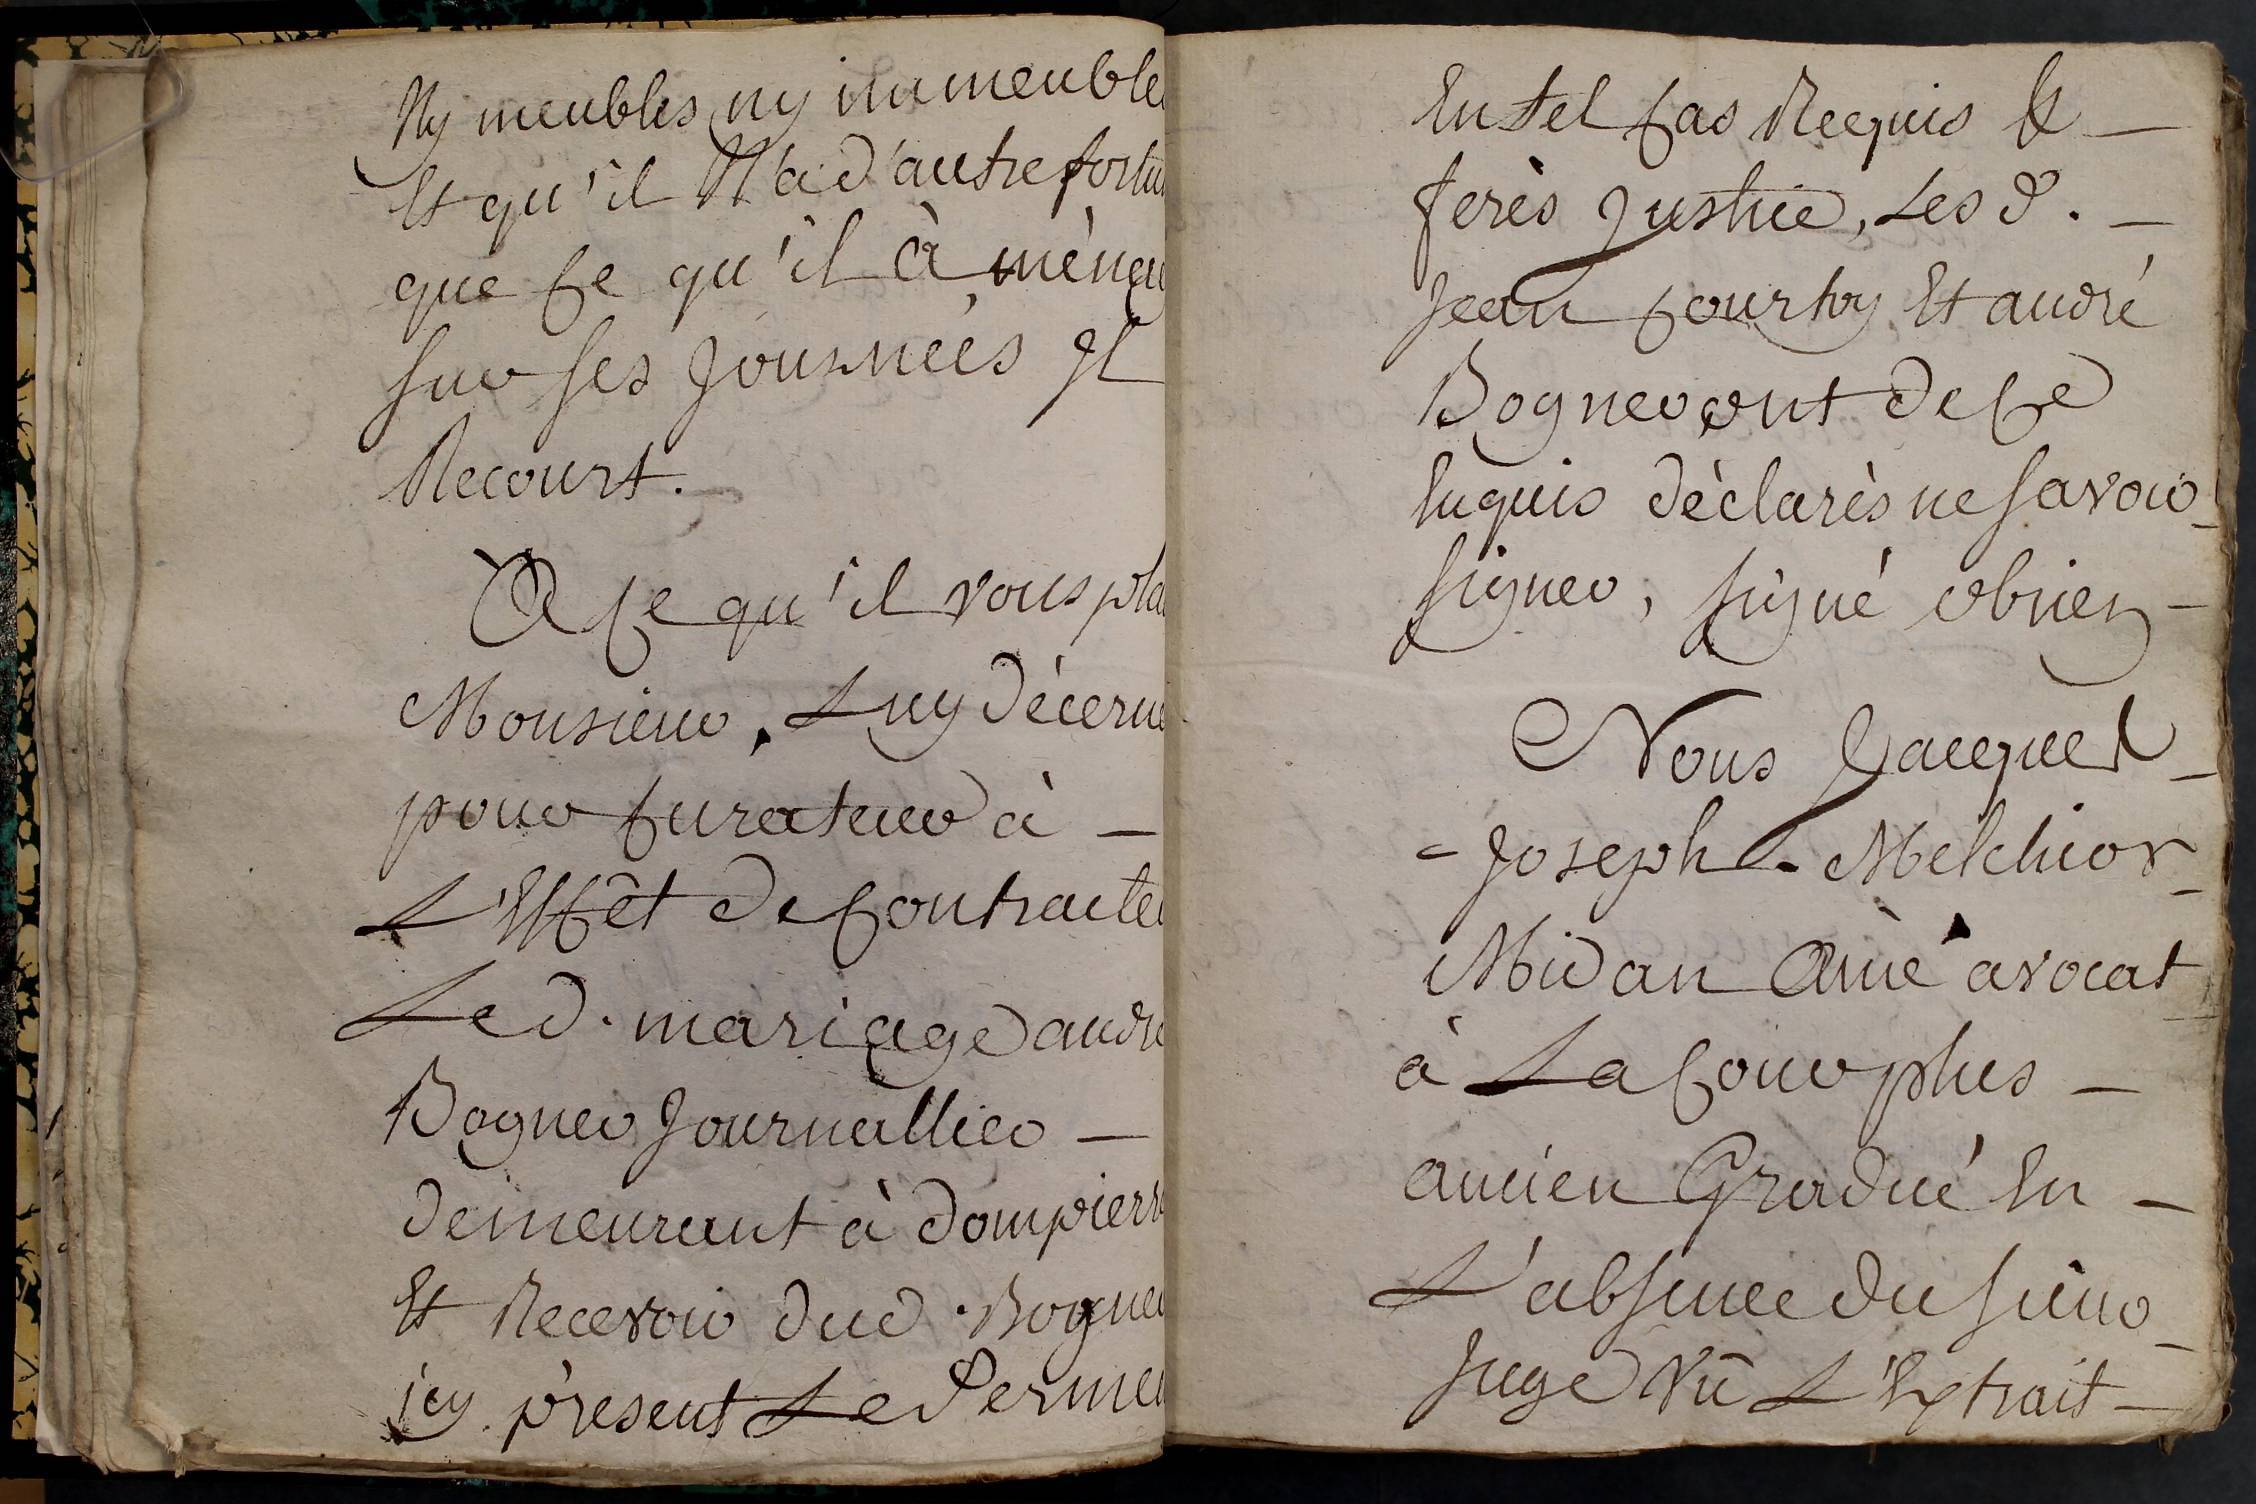 Ny meubles ny immeuble
Et qu'il N'a d'autre fortu
que Ce qu'il à mèna
sur ses Journèes Il
Recourt.
A Ce qu'il vous pla
Monsieur, Luy dècerne
pour Curateur à —
L'Effêt de Contracter
Le d. mariage andre
Bogner Journallier —
demeurant à dompierr
Et Recevoir dud. Bogner
icy present Le Serme
En tel Cas Requis Et —
ferès Justice, Les d. —
Jean Courtoy Et andré
Bogner ont de Ce
Enquis dèclarès ne savoir
signer, signé obrien —
Nous Jacques —
Joseph - Melchior
Midan Ainè avocat
à La Cour plus —
ancien Gradué En —
L'absence du sieur
Juge Vû L'Extrait —